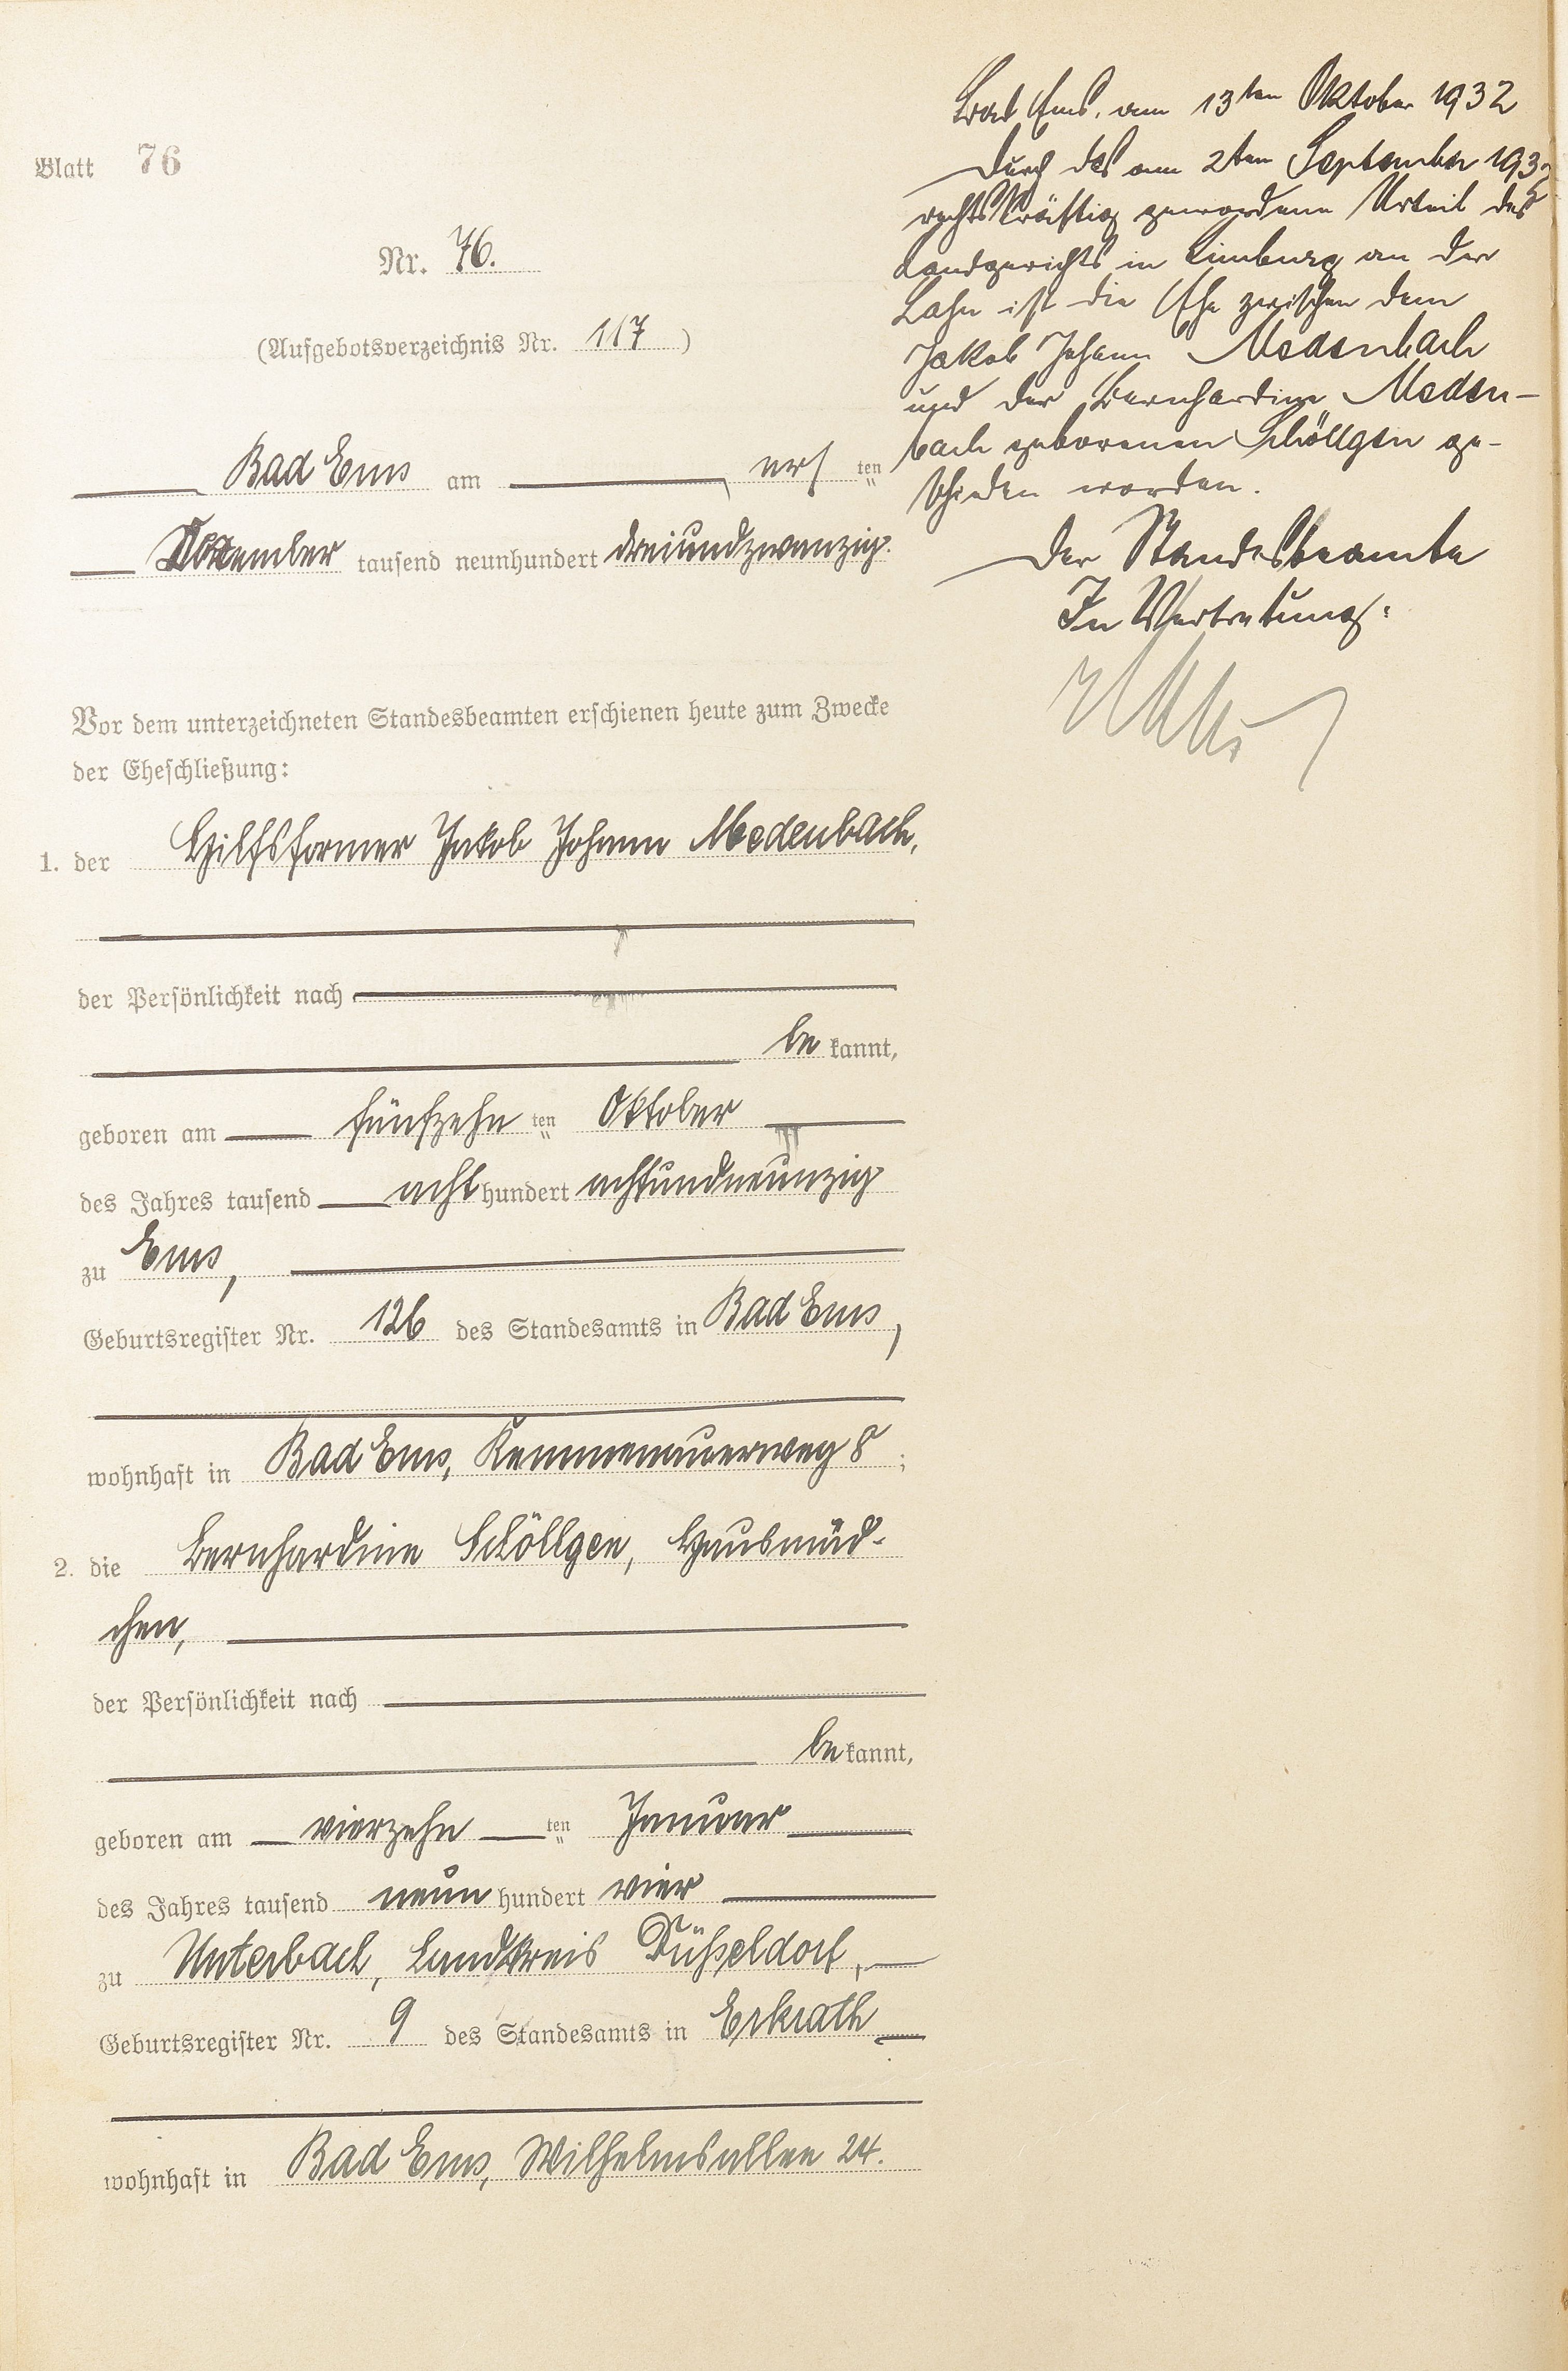 Blatt 76
Nr. 76.
(Aufgebotsverzeichnis Nr. 117)
Bad Ems am ersten
tausend neunhundert dreiundzwanzig.
Vor dem unterzeichneten Standesbeamten erschienen heute zum Zwecke
der Eheschließung:
1. der Hilfsformer Jakob Johann Medenbach,
der Persönlichkeit nach
bekannt,
geboren am fünfzehnten Oktober
des Jahres tausend achthundert achtundneunzig
zu Ems,
Geburtsregister Nr. 126 des Standesamts in Bad Ems,
wohnhaft in Bad Ems, Kemmenauerweg 8;
2. die Bernhardine Schöllgen, Hausmäd-
chen,
der Persönlichkeit nach
bekannt,
geboren am vierzehnten Januar
des Jahres tausend neunhundert vier
zu Unterbach, Landkreis Düsseldorf,
Geburtsregister Nr. 9 des Standesamts in Erkrath
wohnhaft in Bad Ems, Wilhelmsallee 24.
Bad Ems, am 13ten Oktober 1932
Durch das am 2ten September 1932
rechtskräftig gewordene Urteil des
Landgerichts in Limburg an der
Lahn ist die Ehe zwischen dem
Jakob Johann Medenbach
und der Bernhardine Meden-
bach geborenen Schöllgen ge-
schieden worden.
Der Standesbeamte
In Vertretung: